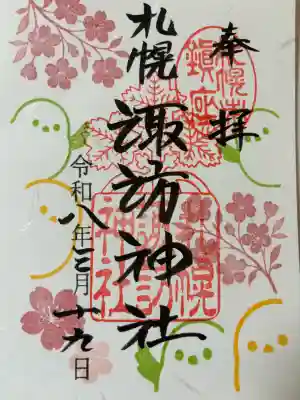 奉拝
札幌
諏訪神社
令和八年三月廿九日
札幌
諏訪
神社